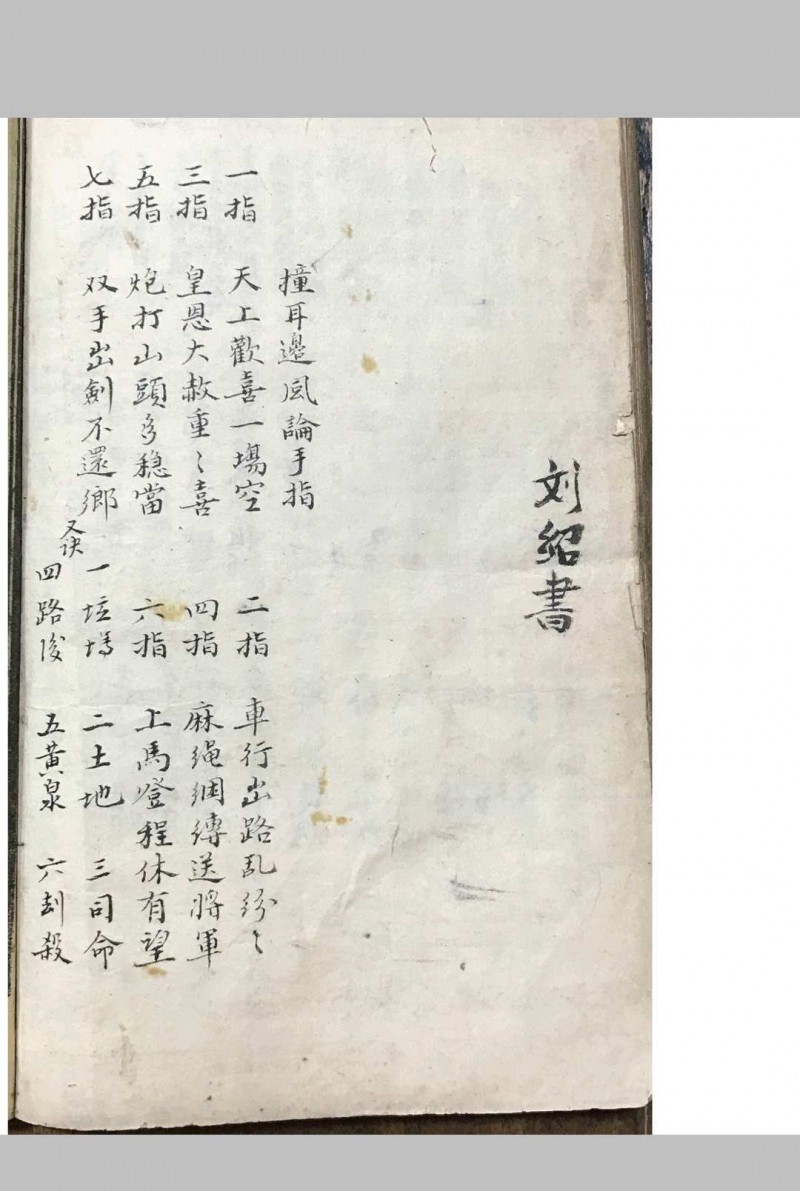 刘紹書
撞耳邊风論手指
一指 天上歡喜一場空 二指 車行出路乱紛〻
三指 皇恩大赦重〻喜 四指 麻绳綑縛送將軍
五指 炮打山頭多稳當 六指 上馬登程休有望
七指 双手出劍不還鄉
又诀
一坟 二土地 三司命
四路 五黄泉 六刦殺